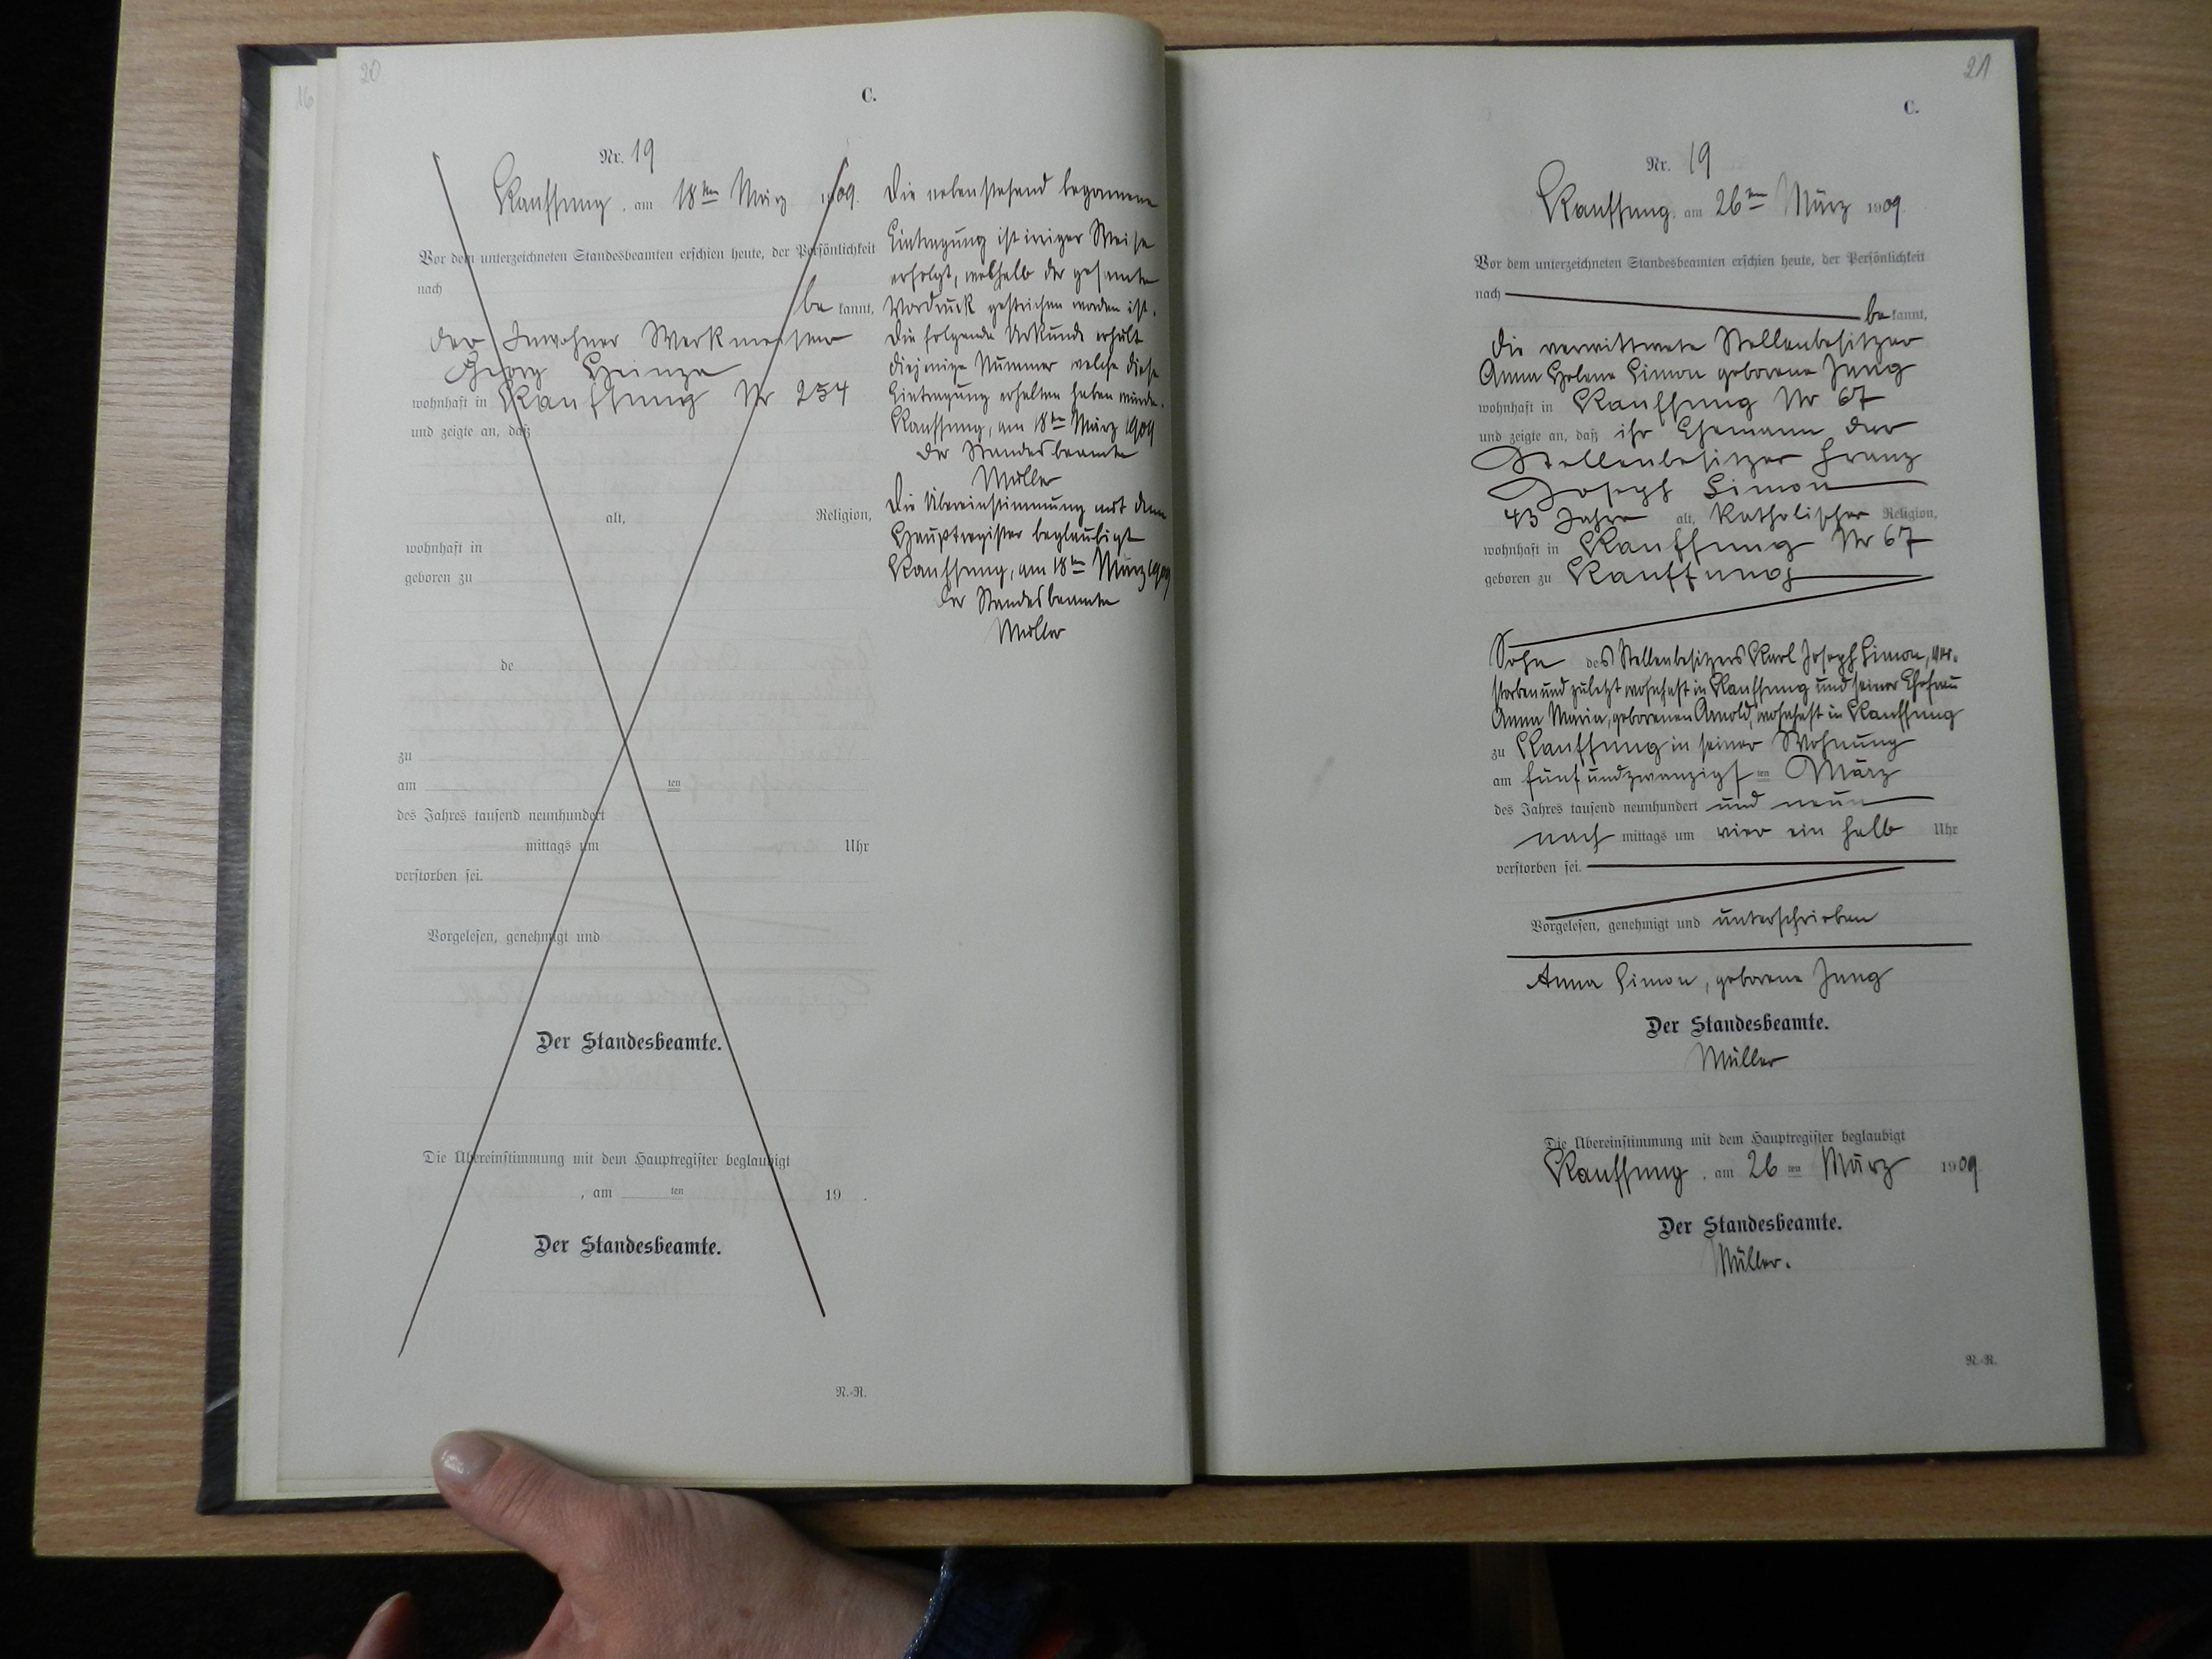 16
20
C.
Nr. 19
Kauffung, am 18ten März 1909.
Vor dem unterzeichneten Standesbeamten erschien heute, der Persönlichkeit
nach
be kannt,
der Inwohner Werkmeister
Georg Heinze
wohnhaft in Kauffung Nr 254
und zeigte an, daß
alt, Religion,
wohnhaft in
geboren zu
de
zu
am ten
des Jahres tausend neunhundert
mittags um Uhr
verstorben sei.
Vorgelesen, genehmigt und
Der Standesbeamte.
Die Übereinstimmung mit dem Hauptregister beglaubigt
, am ten 19 .
Der Standesbeamte.
N.-R.
Die nebenstehend begonnene
Eintragung ist iniger Weise
erfolgt, weshalb der gesamte
Vordruck gestrichen worden ist.
Die folgende Urkunde erhält
diejenige Nummer welche diese
Eintragung erhalten haben würde.
Kauffung, am 18ten März 1909
Der Standesbeamte
Müller
Die Übereinstimmung mit dem
Hauptregister beglaubigt
Kauffung, am 18ten März 1909
Der Standesbeamte
Müller
21
C.
Nr. 19
Kauffung, am 26ten März 1909.
Vor dem unterzeichneten Standesbeamten erschien heute, der Persönlichkeit
nach
be kannt,
die verwittwete Stellenbesitzer
Anna Helene Simon geborene Jung
wohnhaft in Kauffung Nr 67
und zeigte an, daß ihr Ehemann der
Stellenbesitzer Franz
Joseph Simon
43 Jahre alt, katholischer Religion,
wohnhaft in Kauffung Nr 67
geboren zu Kauffung
Sohn des Stellenbesitzers Karl Joseph Simon, ver-
storben und zuletzt wohnhaft in Kauffung und seiner Ehefrau
Anna Maria, geborenen Arnold, wohnhaft in Kauffung
zu Kauffung in seiner Wohnung
am fünfundzwanzigsten März
des Jahres tausend neunhundert und neun
nach mittags um vier ein halb Uhr
verstorben sei.
Vorgelesen, genehmigt und unterschrieben
Anna Simon, geborene Jung
Der Standesbeamte.
Müller
Die Übereinstimmung mit dem Hauptregister beglaubigt
Kauffung, am 26ten März 1909.
Der Standesbeamte.
Müller.
N.-R.